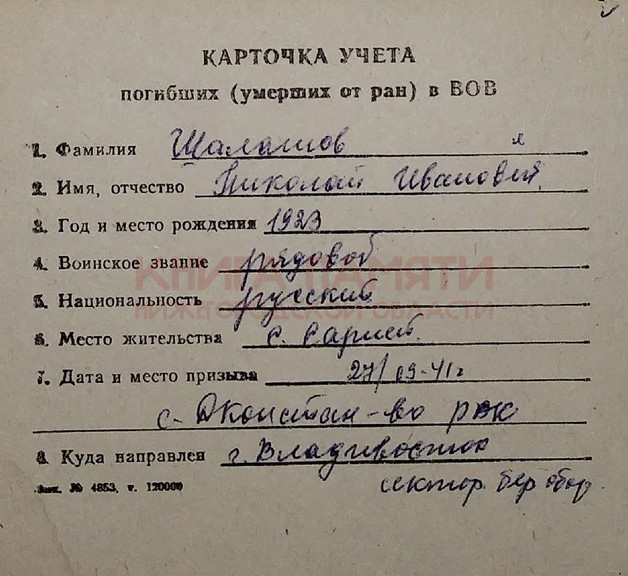 КАРТОЧКА УЧЕТА
погибших (умерших от ран) в ВОВ
1. Фамилия Шалашов
2. Имя, отчество Николай Иванович
3. Год и место рождения 1923
4. Воинское звание рядовой
КНИГА ПАМЯТИ
5. Национальность русский
НИЖЕГОРОДСКОЙ ОБЛАСТИ
6. Место жительства с.
7. Дата и место призыва 27/09-41г
с. Дконстан-во рвк
8. Куда направлен г. Владивосток
Зак. № 4853, т. 120000 сектор бер обор